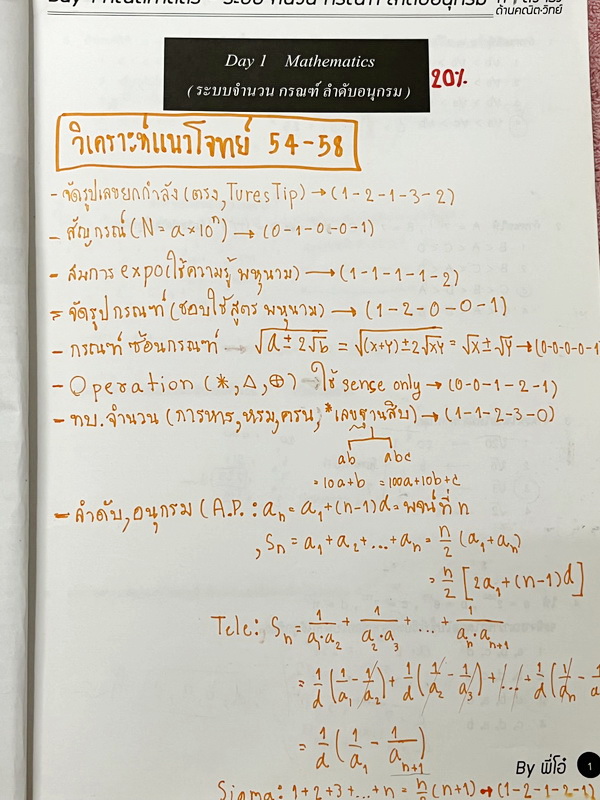 Day 1 Mathematics
(ระบบจำนวน กรณฑ์ ลำดับอนุกรม)
20%
ด้านคณิต-วิทย์
วิเคราะห์แนวโจทย์ 54-58
- จัดรูปเลขยกกำลัง (ตรง, Tures Tip) → (1-2-1-3-2)
- สัญกรณ์ (N = a × 10ⁿ) → (0-1-0-0-1)
- สมการ expo (ใช้ความรู้ พหุนาม) → (1-1-1-1-2)
= จัดรูปกรณฑ์ (ชอบใช้สูตร พหุนาม) → (1-2-0-0-1)
- กรณฑ์ ซ้อนกรณฑ์ → √(a ± 2√b) = √((x+y) ± 2√xy) = √x ± √y → (0-0-0-0-1)
- Operation (*, △, ⊕) → ใช้ sense only → (0-0-1-2-1)
- ทบ.จำนวน (การหาร, หรม, ครน, *เลขฐานสิบ) → (1-1-2-3-0)
ab abc
= 10a+b = 100a+10b+c
- ลำดับ, อนุกรม (A.P. : aₙ = a₁ + (n-1)d = พจน์ที่ n
, Sₙ = a₁ + a₂ + ... + aₙ = n/2 (a₁ + aₙ)
= n/2 [2a₁ + (n-1)d]
Tele: Sₙ = 1/(a₁·a₂) + 1/(a₂·a₃) + ... + 1/(aₙ·aₙ₊₁)
= 1/d (1/a₁ - 1/a₂) + 1/d (1/a₂ - 1/a₃) + ... + 1/d (1/aₙ - 1/a
= 1/d (1/a₁ - 1/aₙ₊₁)
Sigma: 1+2+3+...+n = n/2 (n+1) → (1-2-1-2-1)
By พี่โอ๋ 1